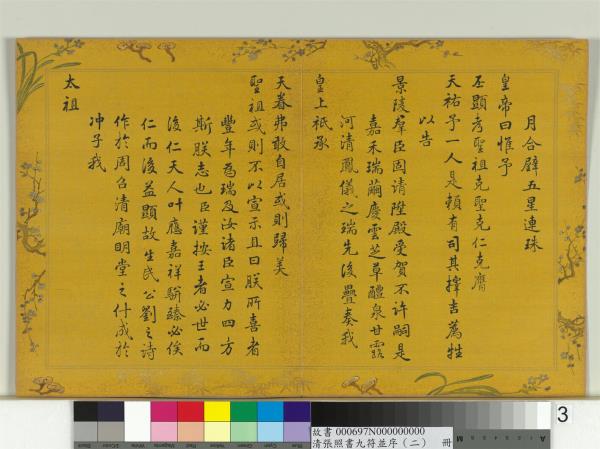 月合璧五星連珠
皇帝曰惟予
丕顯考聖祖克聖克仁克膺
天祐予一人是賴有司其擇吉薦牲
以告
景陵羣臣固請陞殿受賀不許嗣是
嘉禾瑞繭慶雲芝草醴泉甘露
河清鳳儀之瑞先後疊奏我
皇上祗承
天眷弗敢自居或則歸美
聖祖或則不以宣示且曰朕所喜者
豐年為瑞及汝諸臣宣力四方
斯朕志也臣謹按王者必世而
後仁天人叶應嘉祥駢臻必俟
仁而後益顯故生民公劉之詩
作於周召清廟明堂之什成於
沖子我
太祖
3
故書 000697N000000000
清張照書九符並序(二) 冊